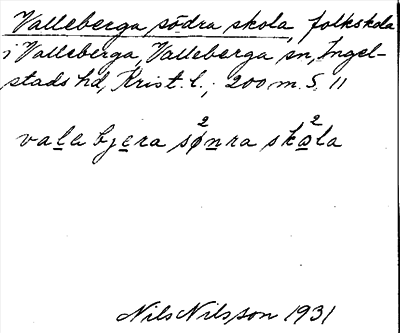 Valleberga södra skola, folkskola
i Valleberga, Valleberga sn, Ingel-
stads hd, Krist. l.; 200 m. S. 11
vala bjera sø²nra sko²la
Nils Nilsson 1931